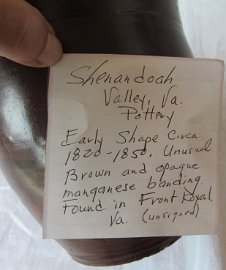 Shenandoah
Valley, Va.
Pottery
Early Shape Circa
1820-1850, Unusual
Brown and opaque
manganese banding.
Found in Front Royal,
Va. (unsigned)